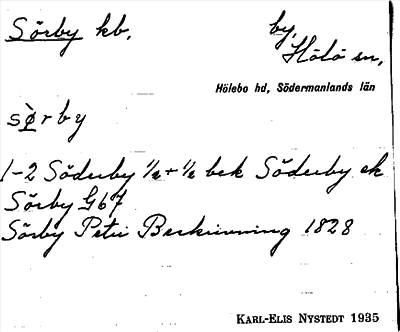 Sörby kb,
by,
Hölö sn,
Hölebo hd, Södermanlands län
sø̀rby
1-2 Söderby ½+½ bek Söderby ek
Sörby G67
Sörby Petri Beskrivning 1828
KARL-ELIS NYSTEDT 1935